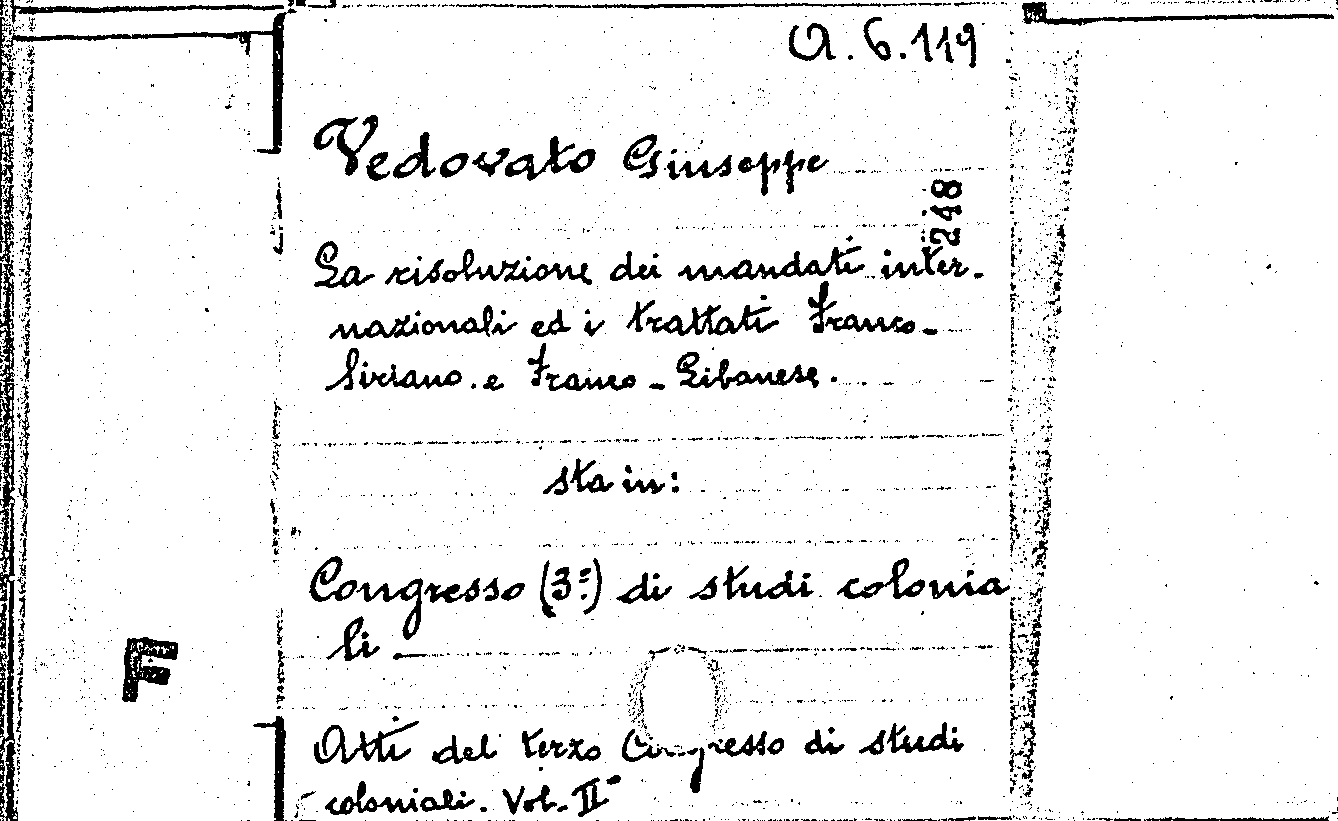 A. 6. 119
Vedovato Giuseppe
248
La risoluzione dei mandati inter-
nazionali ed i trattati Franco-
Siriano. e Franco - Libanese.
sta in:
Congresso (3º) di studi colonia
li
F
Atti del terzo Congresso di studi
coloniali. Vol. IIº